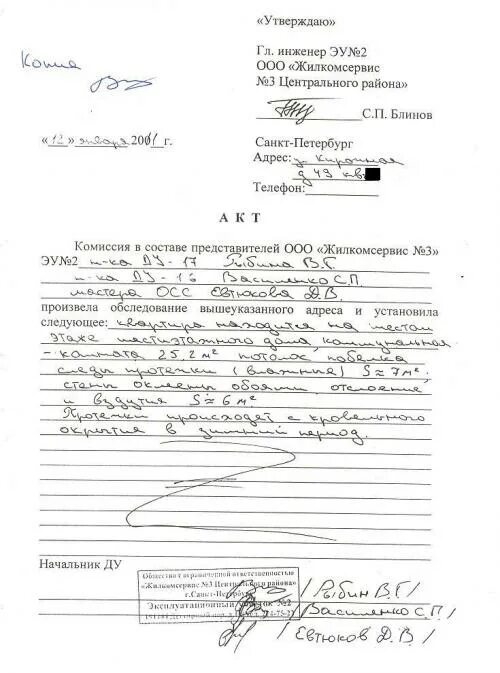 «Утверждаю»
Гл. инженер ЭУ№2
ООО «Жилкомсервис
№3 Центрального района»
Копия
С.П. Блинов
«12» января 2001 г.
Санкт-Петербург
Адрес: ул. Кирочная
д 49 кв
Телефон:
А К Т
Комиссия в составе представителей ООО «Жилкомсервис №3»
ЭУ№2 н-ка ДУ-17 Рыбина В.Г.
н-ка ДУ-16 Василенко С.П.
мастера ОСС Евтюкова Д.В.
произвела обследование вышеуказанного адреса и установила
следующее: квартира находится на шестом
этаже шестиэтажного дома, коммунальная
- комната 25,2 м² потолок, побелка
следы протечки (влажные) S≈7м².
стены оклеены обоями, отслоение
и вздутия S≈6м²
Протечки происходят с кровельного
покрытия в зимний период.
Начальник ДУ
Общество с ограниченной ответственностью
«Жилкомсервис №3 Центрального района»
г.Санкт-Петербург
Эксплуатационный участок №2
/ Рыбин В.Г /
/ Василенко С.П. /
/ Евтюков Д.В. /